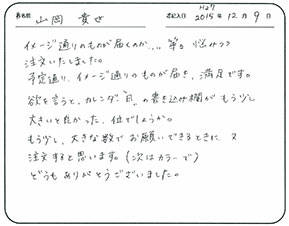 貴名前 山岡 貴
ご記入日 H27 2015年12月9日
イメージ通りのものが届くのか.... 等々 悩みつつ
注文いたしました。
予定通り、イメージ通りのものが届き、満足です。
欲を言うと、カレンダー"日"の書き込み欄がもう少し
大きいと良かった、位でしょうか。
もう少し、大きな数でお願いできるときに 又
注文すると思います。(次はカラーで)
どうもありがとうございました。